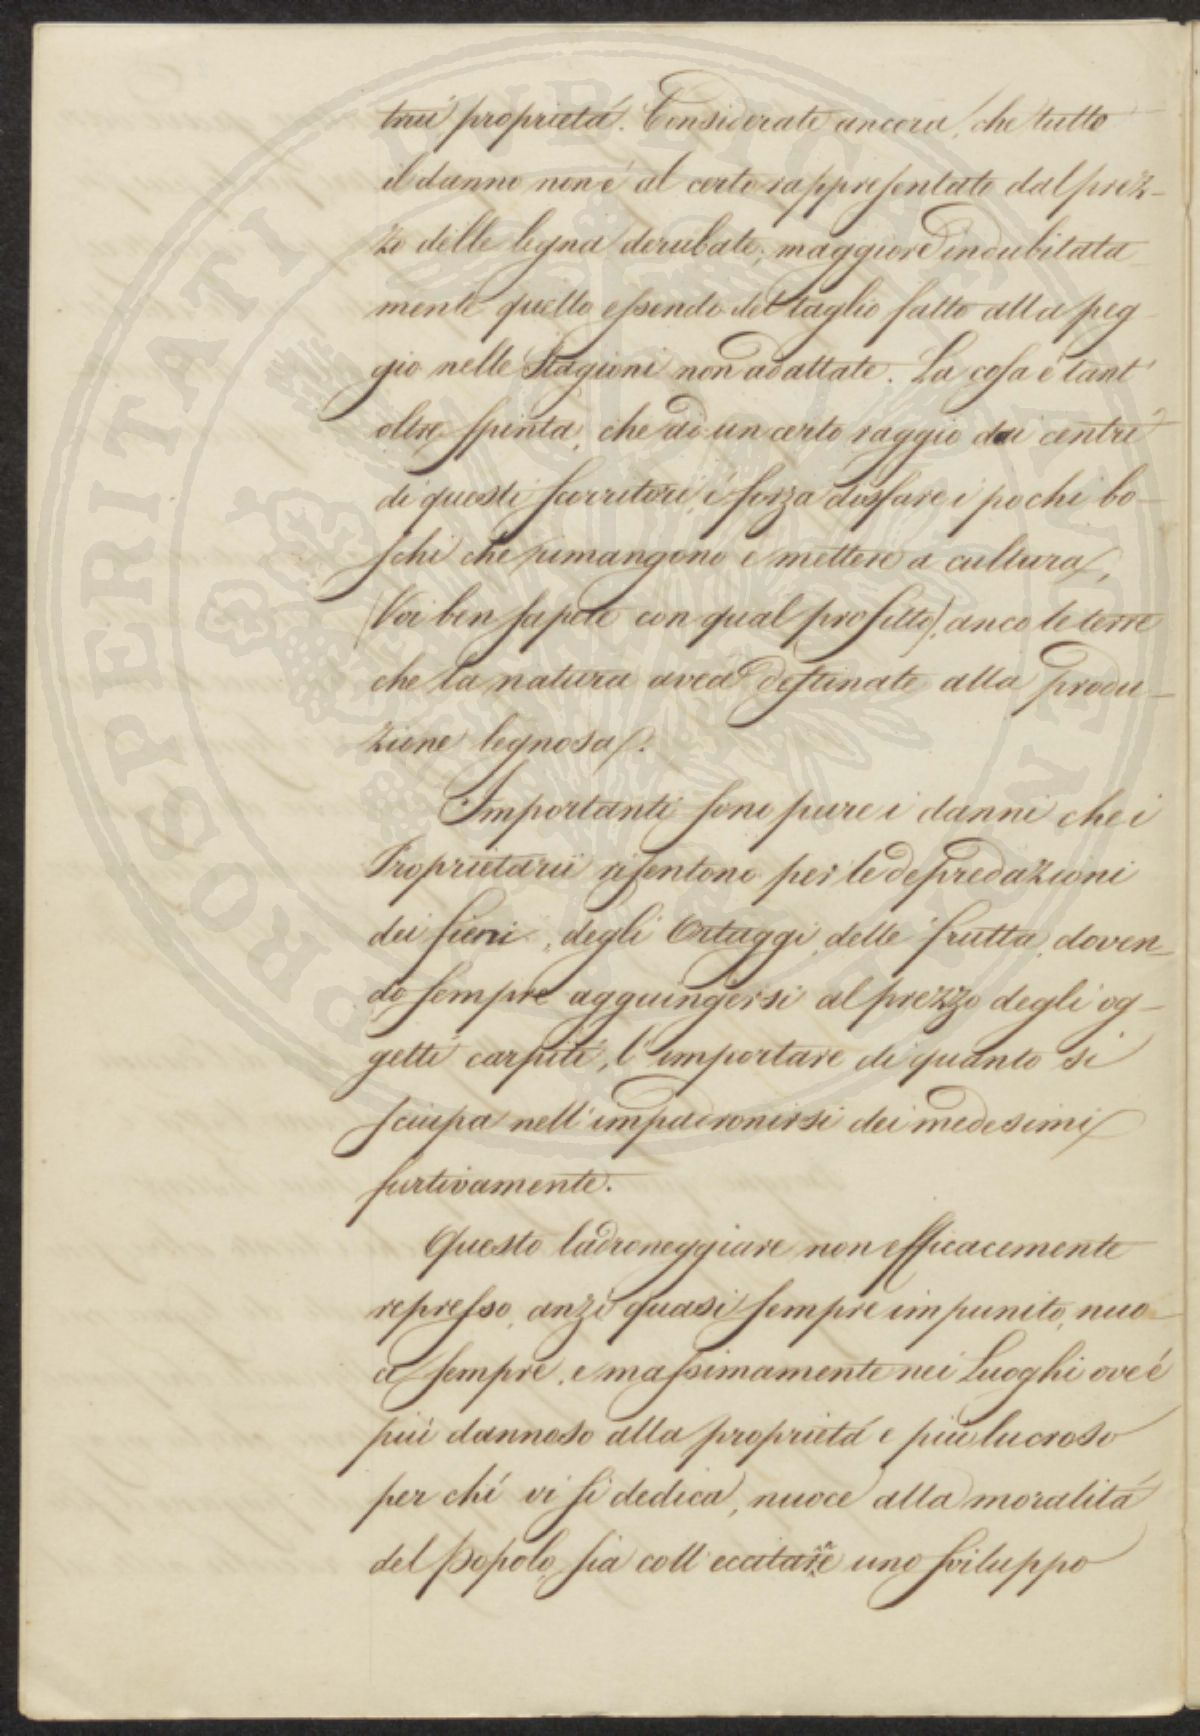 trui proprietá. Considerate ancora, che tutto
il danno non é al certo rappresentato dal prez-
zo delle legna derubate, maggiore indubitata-
mente quello essendo del taglio fatto alla peg-
gio nelle Stagioni non adattate. La cosa é tant'
oltre spinta, che ad un certo raggio dai centri
di questi scorritori, é forza disfare i pochi bo-
schi che rimangono e mettere a cultura,
(Voi ben sapete con qual profitto), anco le terre
che la natura avea destinate alla produ-
zione legnosa.
Importanti sono pure i danni che i
Proprietarii risentono per le depredazioni
dei fieni, degli Ortaggi, delle frutta, doven-
do sempre aggiungersi al prezzo degli og-
getti carpiti, l'importare di quanto si
sciupa nell'impadronirsi dei medesimi
furtivamente.
Questo ladroneggiare non efficacemente
represso, anzi quasi sempre impunito, nuo-
ce sempre, e massimamente nei Luoghi ove é
piú dannoso alla proprietá e piú lucroso
per chi vi si dedica, nuoce alla moralitá
del Popolo, sia coll'eccitare uno sviluppo
PROSPERITATI PUBLICAE AUGENDAE